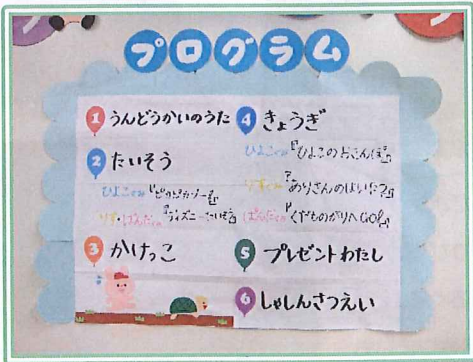 プログラム
1 うんどうかいのうた
2 たいそう
ひよこぐみ
りす・ぱんだぐみ
3 かけっこ
4 きょうぎ
ひよこぐみ『ひよこのおさんぽ』
りすぐみ『ありさんのはいたつ』
ぱんだぐみ『くだものがりへGO!』
5 プレゼントわたし
6 しゃしんさつえい